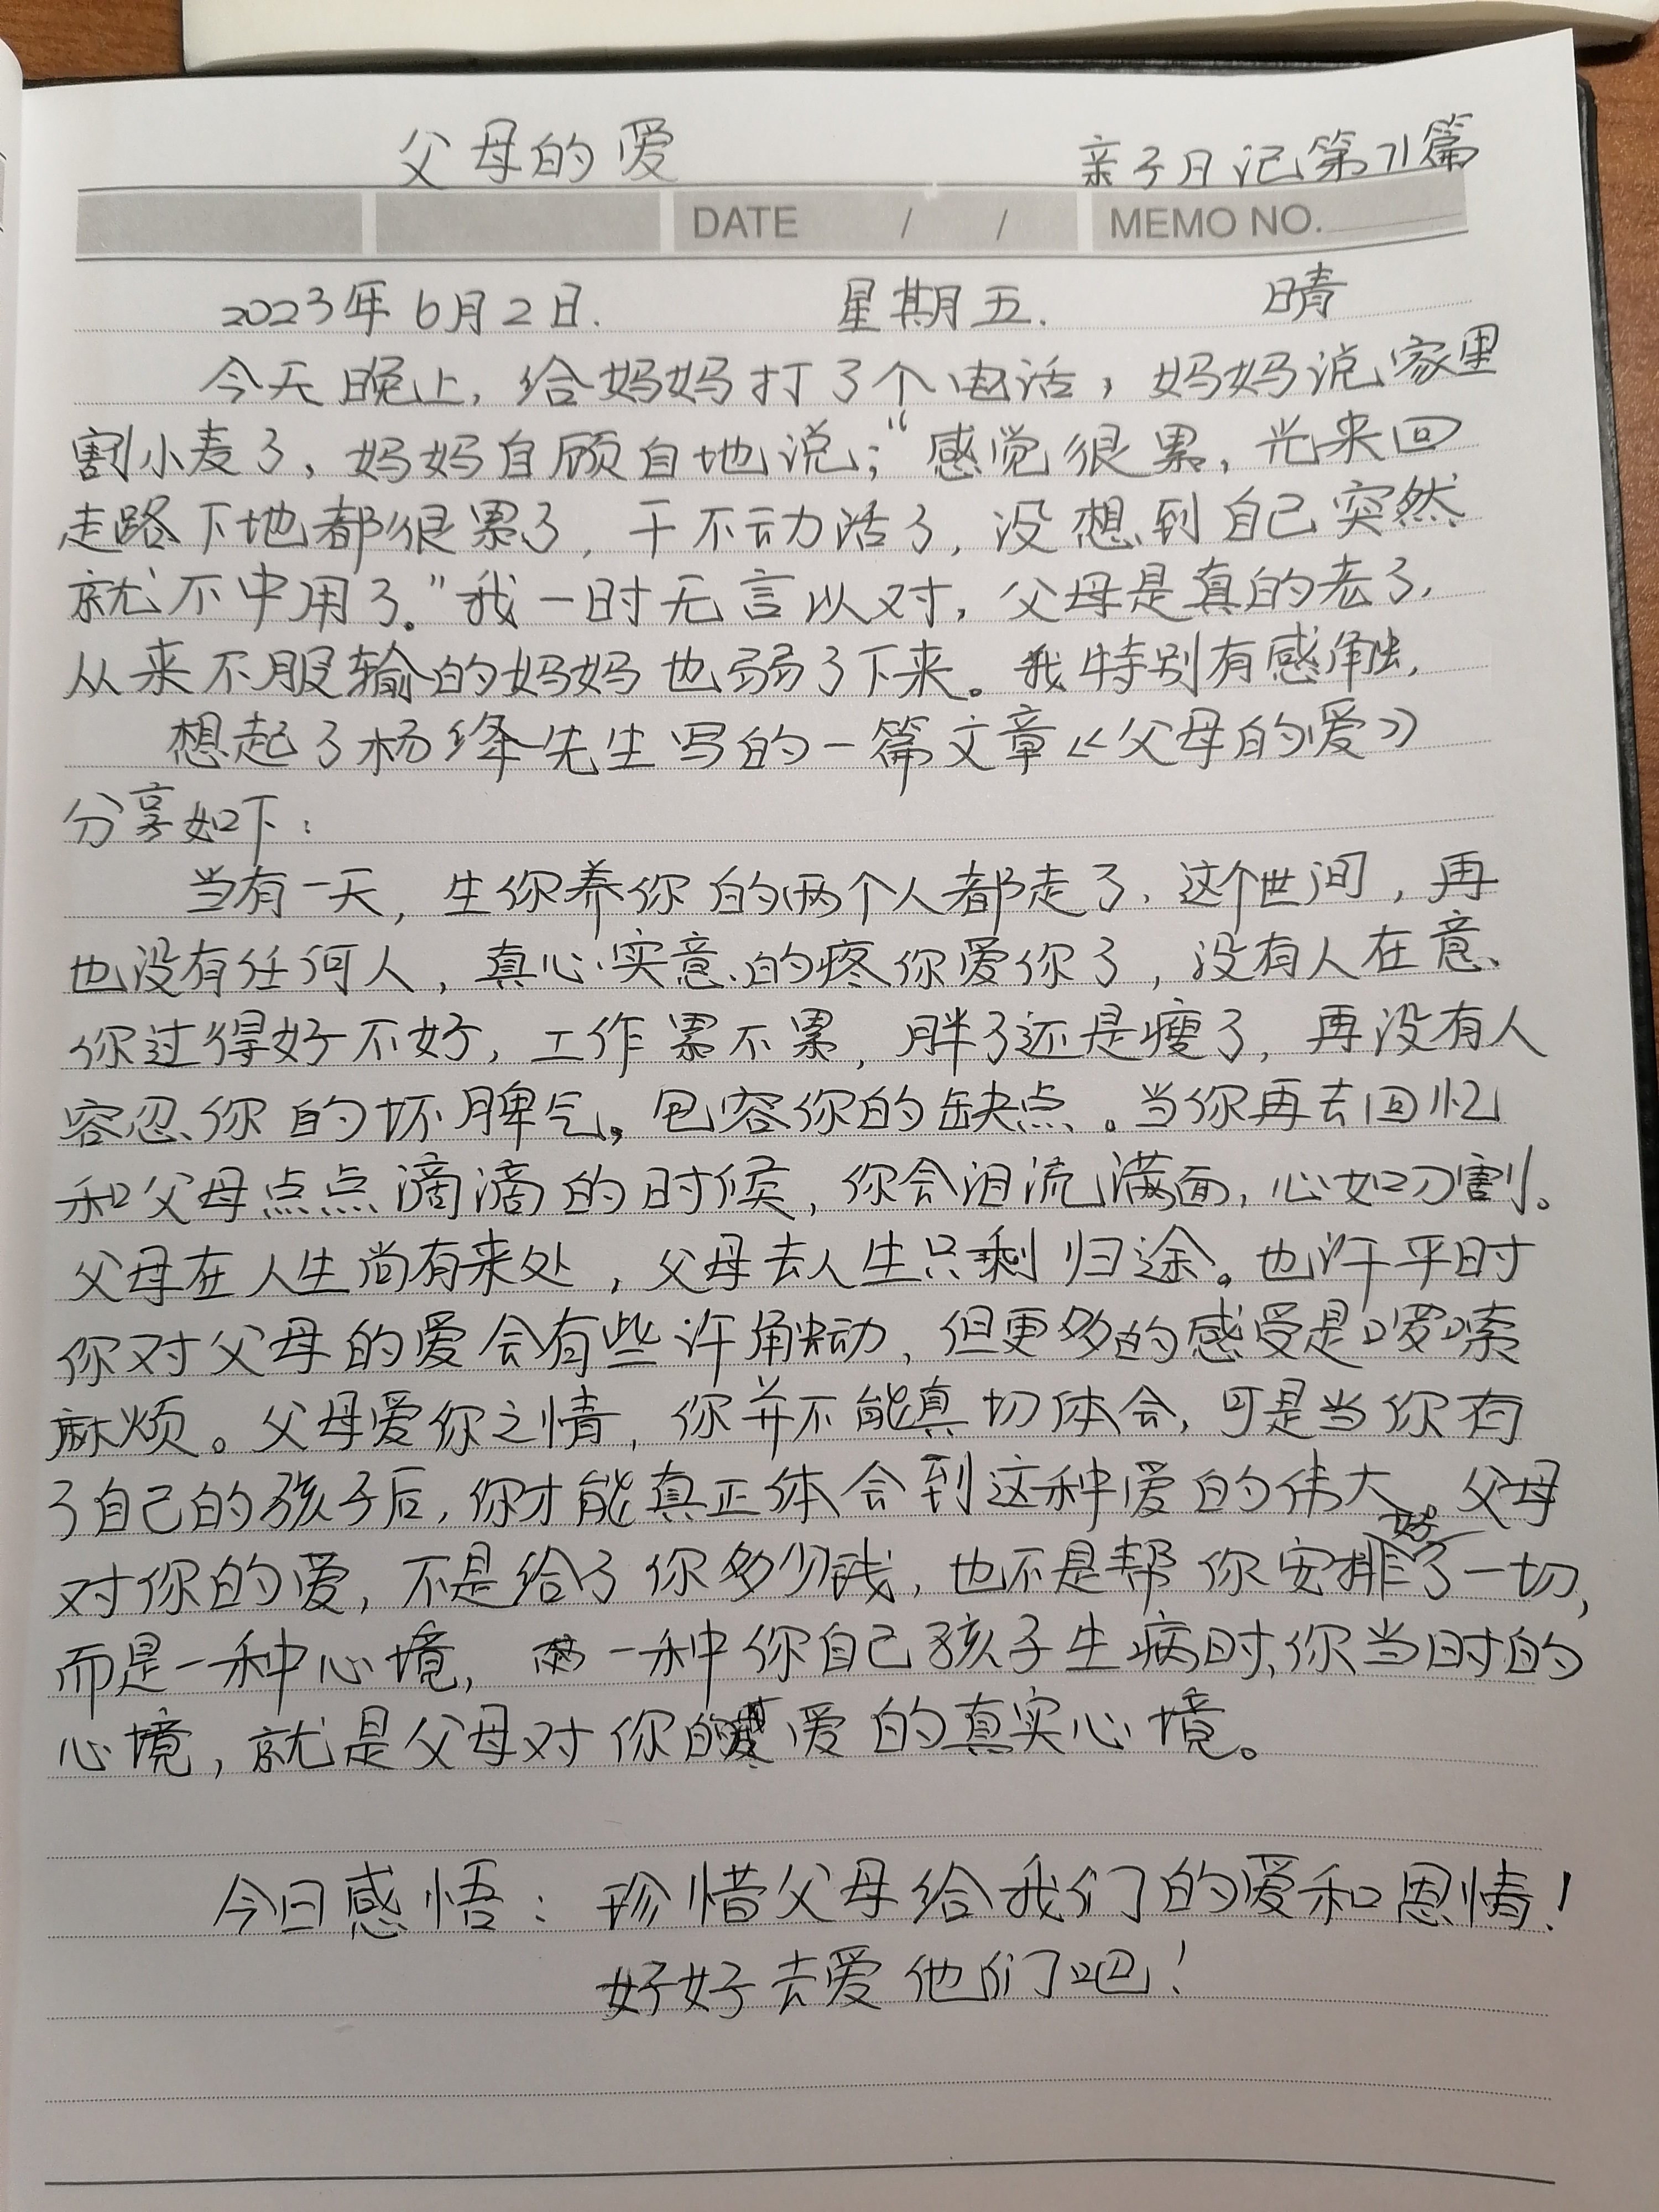 父母的爱 亲子日记第71篇
DATE / / MEMO NO.
2023年6月2日. 星期五. 晴
今天晚上,给妈妈打了个电话,妈妈说家里
割小麦了,妈妈自顾自地说;“感觉很累,光来回
走路下地都很累了,干不动活了,没想到自己突然
就不中用了。”我一时无言以对,父母是真的老了,
从来不服输的妈妈也弱了下来。我特别有感触,
想起了杨绛先生写的一篇文章《父母的爱》
分享如下:
当有一天,生你养你的两个人都走了,这个世间,再
也没有任何人,真心实意的疼你爱你了,没有人在意
你过得好不好,工作累不累,胖了还是瘦了,再没有人
容忍你的坏脾气,包容你的缺点。当你再去回忆
和父母点点滴滴的时候,你会泪流满面,心如刀割。
父母在人生尚有来处,父母去人生只剩归途。也许平时
你对父母的爱会有些许触动,但更多的感受是啰嗦
麻烦。父母爱你之情,你并不能真切体会,可是当你有
了自己的孩子后,你才能真正体会到这种爱的伟大。父母
对你的爱,不是给了你多少钱,也不是帮你安排好了一切,
而是一种心境,一种你自己孩子生病时,你当时的
心境,就是父母对你的爱的真实心境。
今日感悟:珍惜父母给我们的爱和恩情!
好好去爱他们吧!